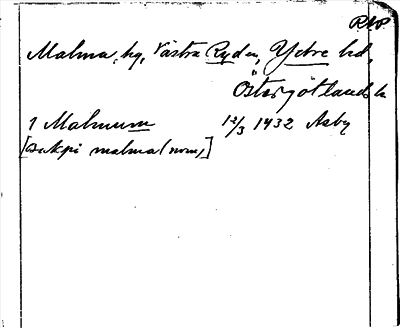 Malma, hg, Västra Ryden, Ydre hd,
Östergötlands l.
1 Malmum 12/3 1432 Asby
malma (nom.)]